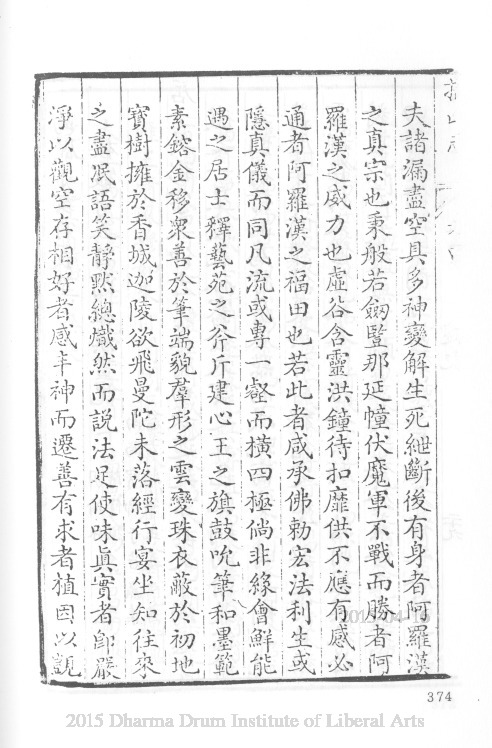 夫諸漏盡空具多神變解生死紲斷後有身者阿羅漢
之真宗也秉般若劔豎那延幢伏魔軍不戰而勝者阿
羅漢之威力也虛谷含靈洪鐘待扣靡供不應有感必
通者阿羅漢之福田也若此者咸承佛勅宏法利生或
隱真儀而同凡流或專一壑而橫四極倘非緣會鮮能
遇之居士釋藝苑之斧斤建心王之旗鼓吮筆和墨範
素鎔金移衆善於筆端貌羣形之雲變珠衣蔽於初地
寶樹擁於香城迦陵欲飛曼陀未落經行宴坐知往來
之盡泯語笑靜默總熾然而說法足使味眞實者卽嚴
淨以觀空存相好者感丰神而遷善有求者植因以覬
374
2015 Dharma Drum Institute of Liberal Arts